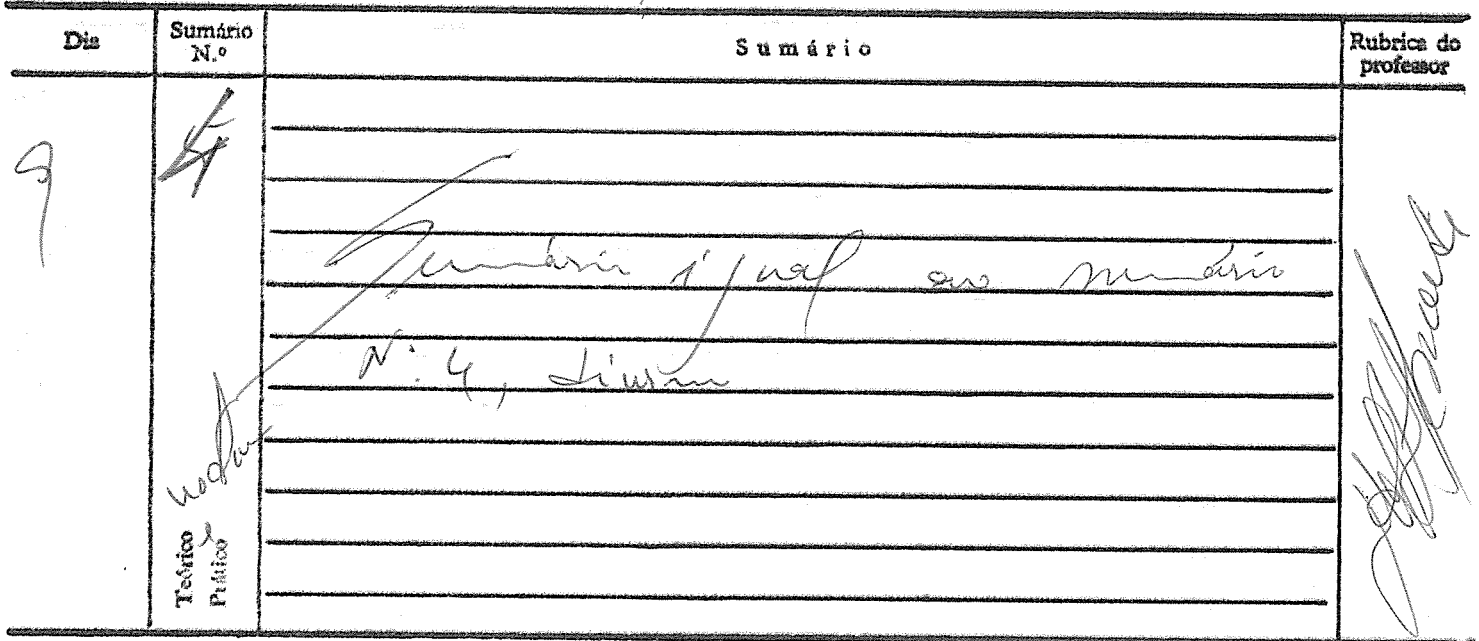 Dia
Sumário N.º
Sumário
Rubrica do professor
9
4
Sumário igual ao sumário
N.º 4, diurno
Teórico
Prático